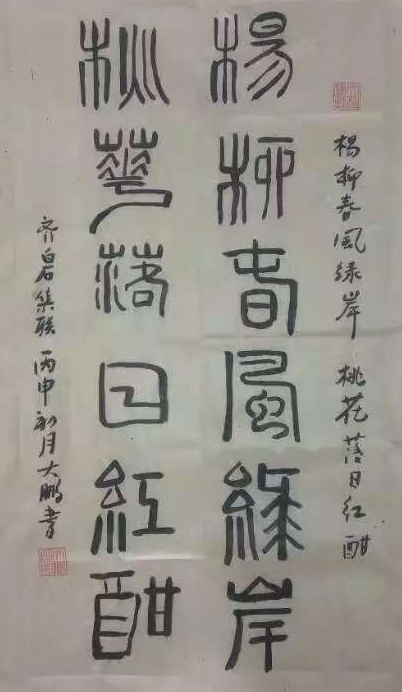 杨柳春风绿岸 桃花落日红酣
楊柳春風綠岸
桃華落日紅酣
齐白石集联 丙申初月大鹏书